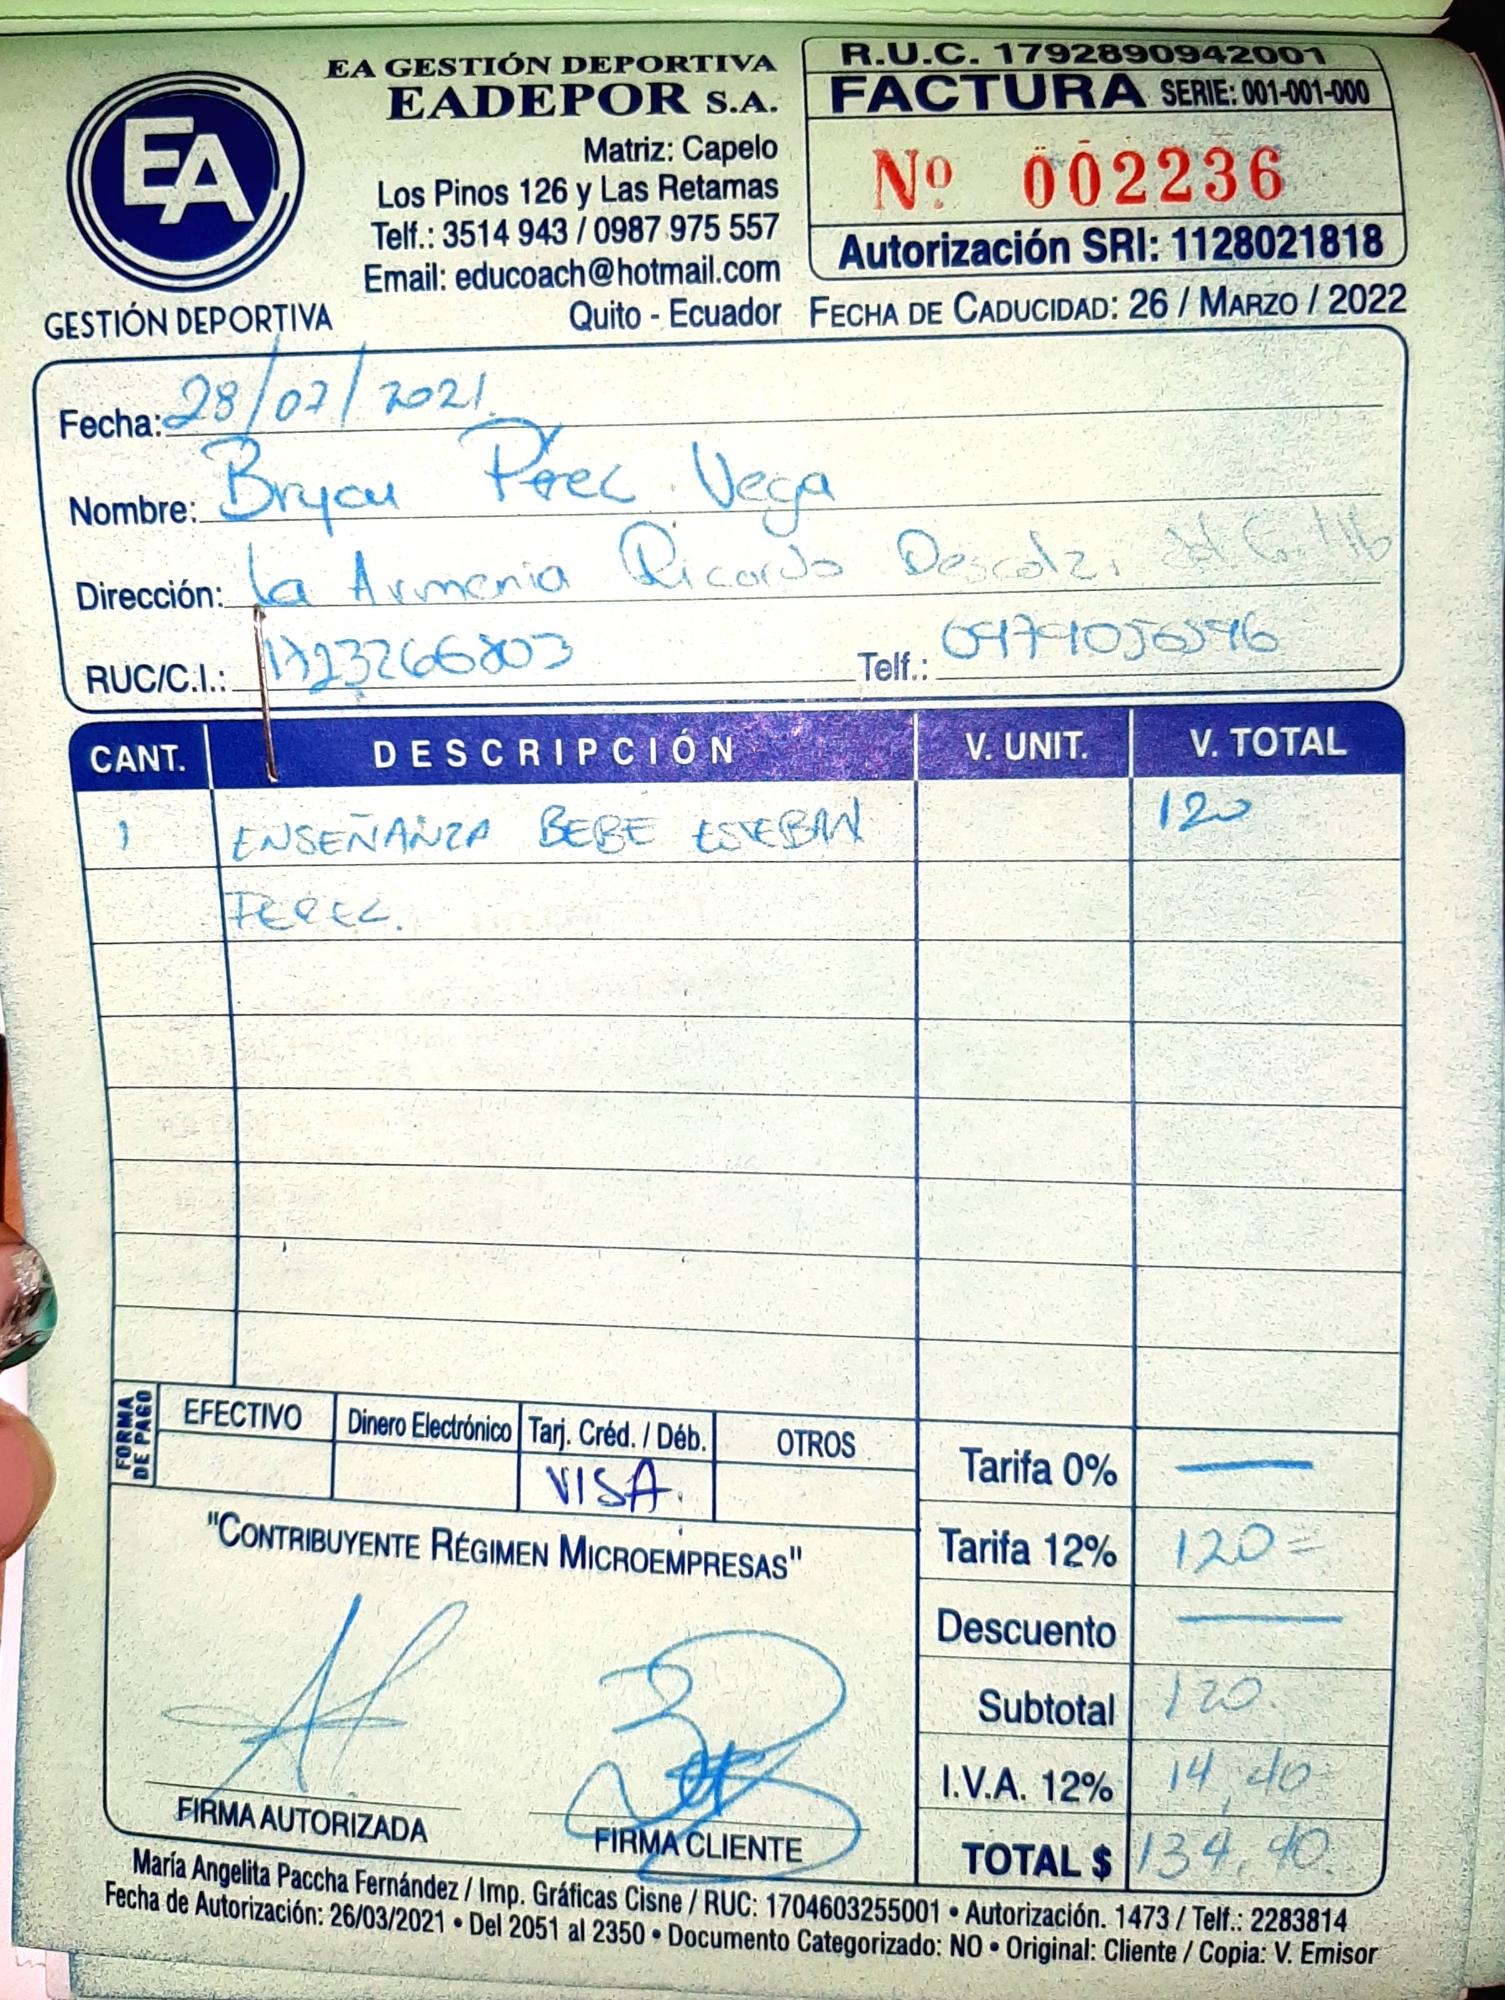 EA
GESTIÓN DEPORTIVA
EA GESTIÓN DEPORTIVA
EADEPOR S.A.
Matriz: Capelo
Los Pinos 126 y Las Retamas
Telf.: 3514 943 / 0987 975 557
Email: educoach@hotmail.com
Quito - Ecuador
R.U.C. 1792890942001
FACTURA SERIE: 001-001-000
Nº 002236
Autorización SRI: 1128021818
FECHA DE CADUCIDAD: 26 / MARZO / 2022
Fecha: 28/07/2021
Nombre: Bryan Pérez Vega
Dirección: La Armenia Ricardo Descalzi
RUC/C.I.: 1723266803 Telf.:
CANT. DESCRIPCIÓN V. UNIT. V. TOTAL
1 ENSEÑANZA BEBE ESTEBAN 120
PEREZ.
FORMA DE PAGO
EFECTIVO Dinero Electrónico Tarj. Créd. / Déb. OTROS
VISA.
Tarifa 0% —
Tarifa 12% 120=
Descuento —
Subtotal 120.
I.V.A. 12% 14,40
TOTAL $ 134,40.
"CONTRIBUYENTE RÉGIMEN MICROEMPRESAS"
FIRMA AUTORIZADA FIRMA CLIENTE
María Angelita Paccha Fernández / Imp. Gráficas Cisne / RUC: 1704603255001 • Autorización. 1473 / Telf.: 2283814
Fecha de Autorización: 26/03/2021 • Del 2051 al 2350 • Documento Categorizado: NO • Original: Cliente / Copia: V. Emisor